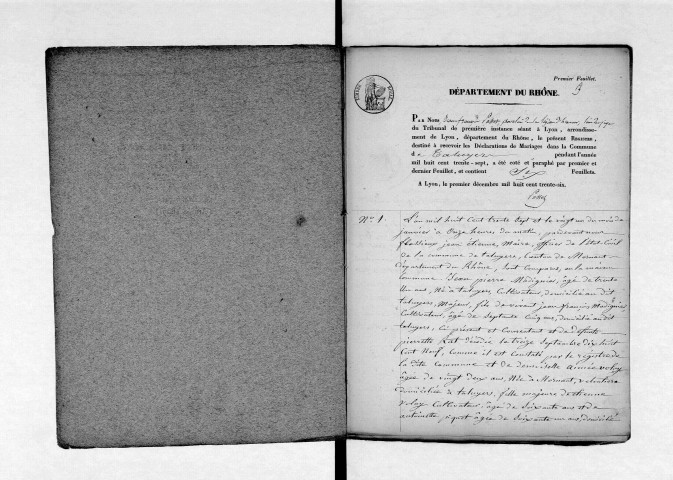 Premier Feuillet.
DÉPARTEMENT DU RHÔNE.
PAR NOUS
du Tribunal de première instance séant à Lyon, arrondisse-
ment de Lyon, département du Rhône, le présent REGISTRE,
destiné à recevoir les Déclarations de Mariages dans la Commune
de Taluyers pendant l'année
mil huit cent trente-sept, a été coté et paraphé par premier et
dernier Feuillet, et contient Six Feuillets.
A Lyon, le premier décembre mil huit cent trente-six.
N.° 1.
L'an mil huit Cent trente Sept et le vingt un du mois de
janvier à Onze heures du matin, pardevant nous
jean étienne, Maire, officier de l'état Civil
de la commune de taluyers, Canton de Mornant
département du Rhône, Sont Comparus, en la maison
Commune Jean pierre Madignier, âgé de trente
Un ans, Né à taluyers Cultivateur, domicilié au dit
taluyers, Majeur, fils de vivant jean françois Madignier
Cultivateur, âgé de Septante Cinq ans, domicilié au dit
taluyers, Ci présent et Consentant et de défunte
pierrette décédée le treize Septembre dix huit
Cent Neuf, Comme il est Constaté par le registre de
la dite Commune et de demoiselle
âgée de vingt deux ans, Née à Mornant,
domiciliée à taluyers, fille majeure d'étienne
Cultivateur âgé de Soixante ans et de
antoinette âgée de Soixante un ans, domiciliés